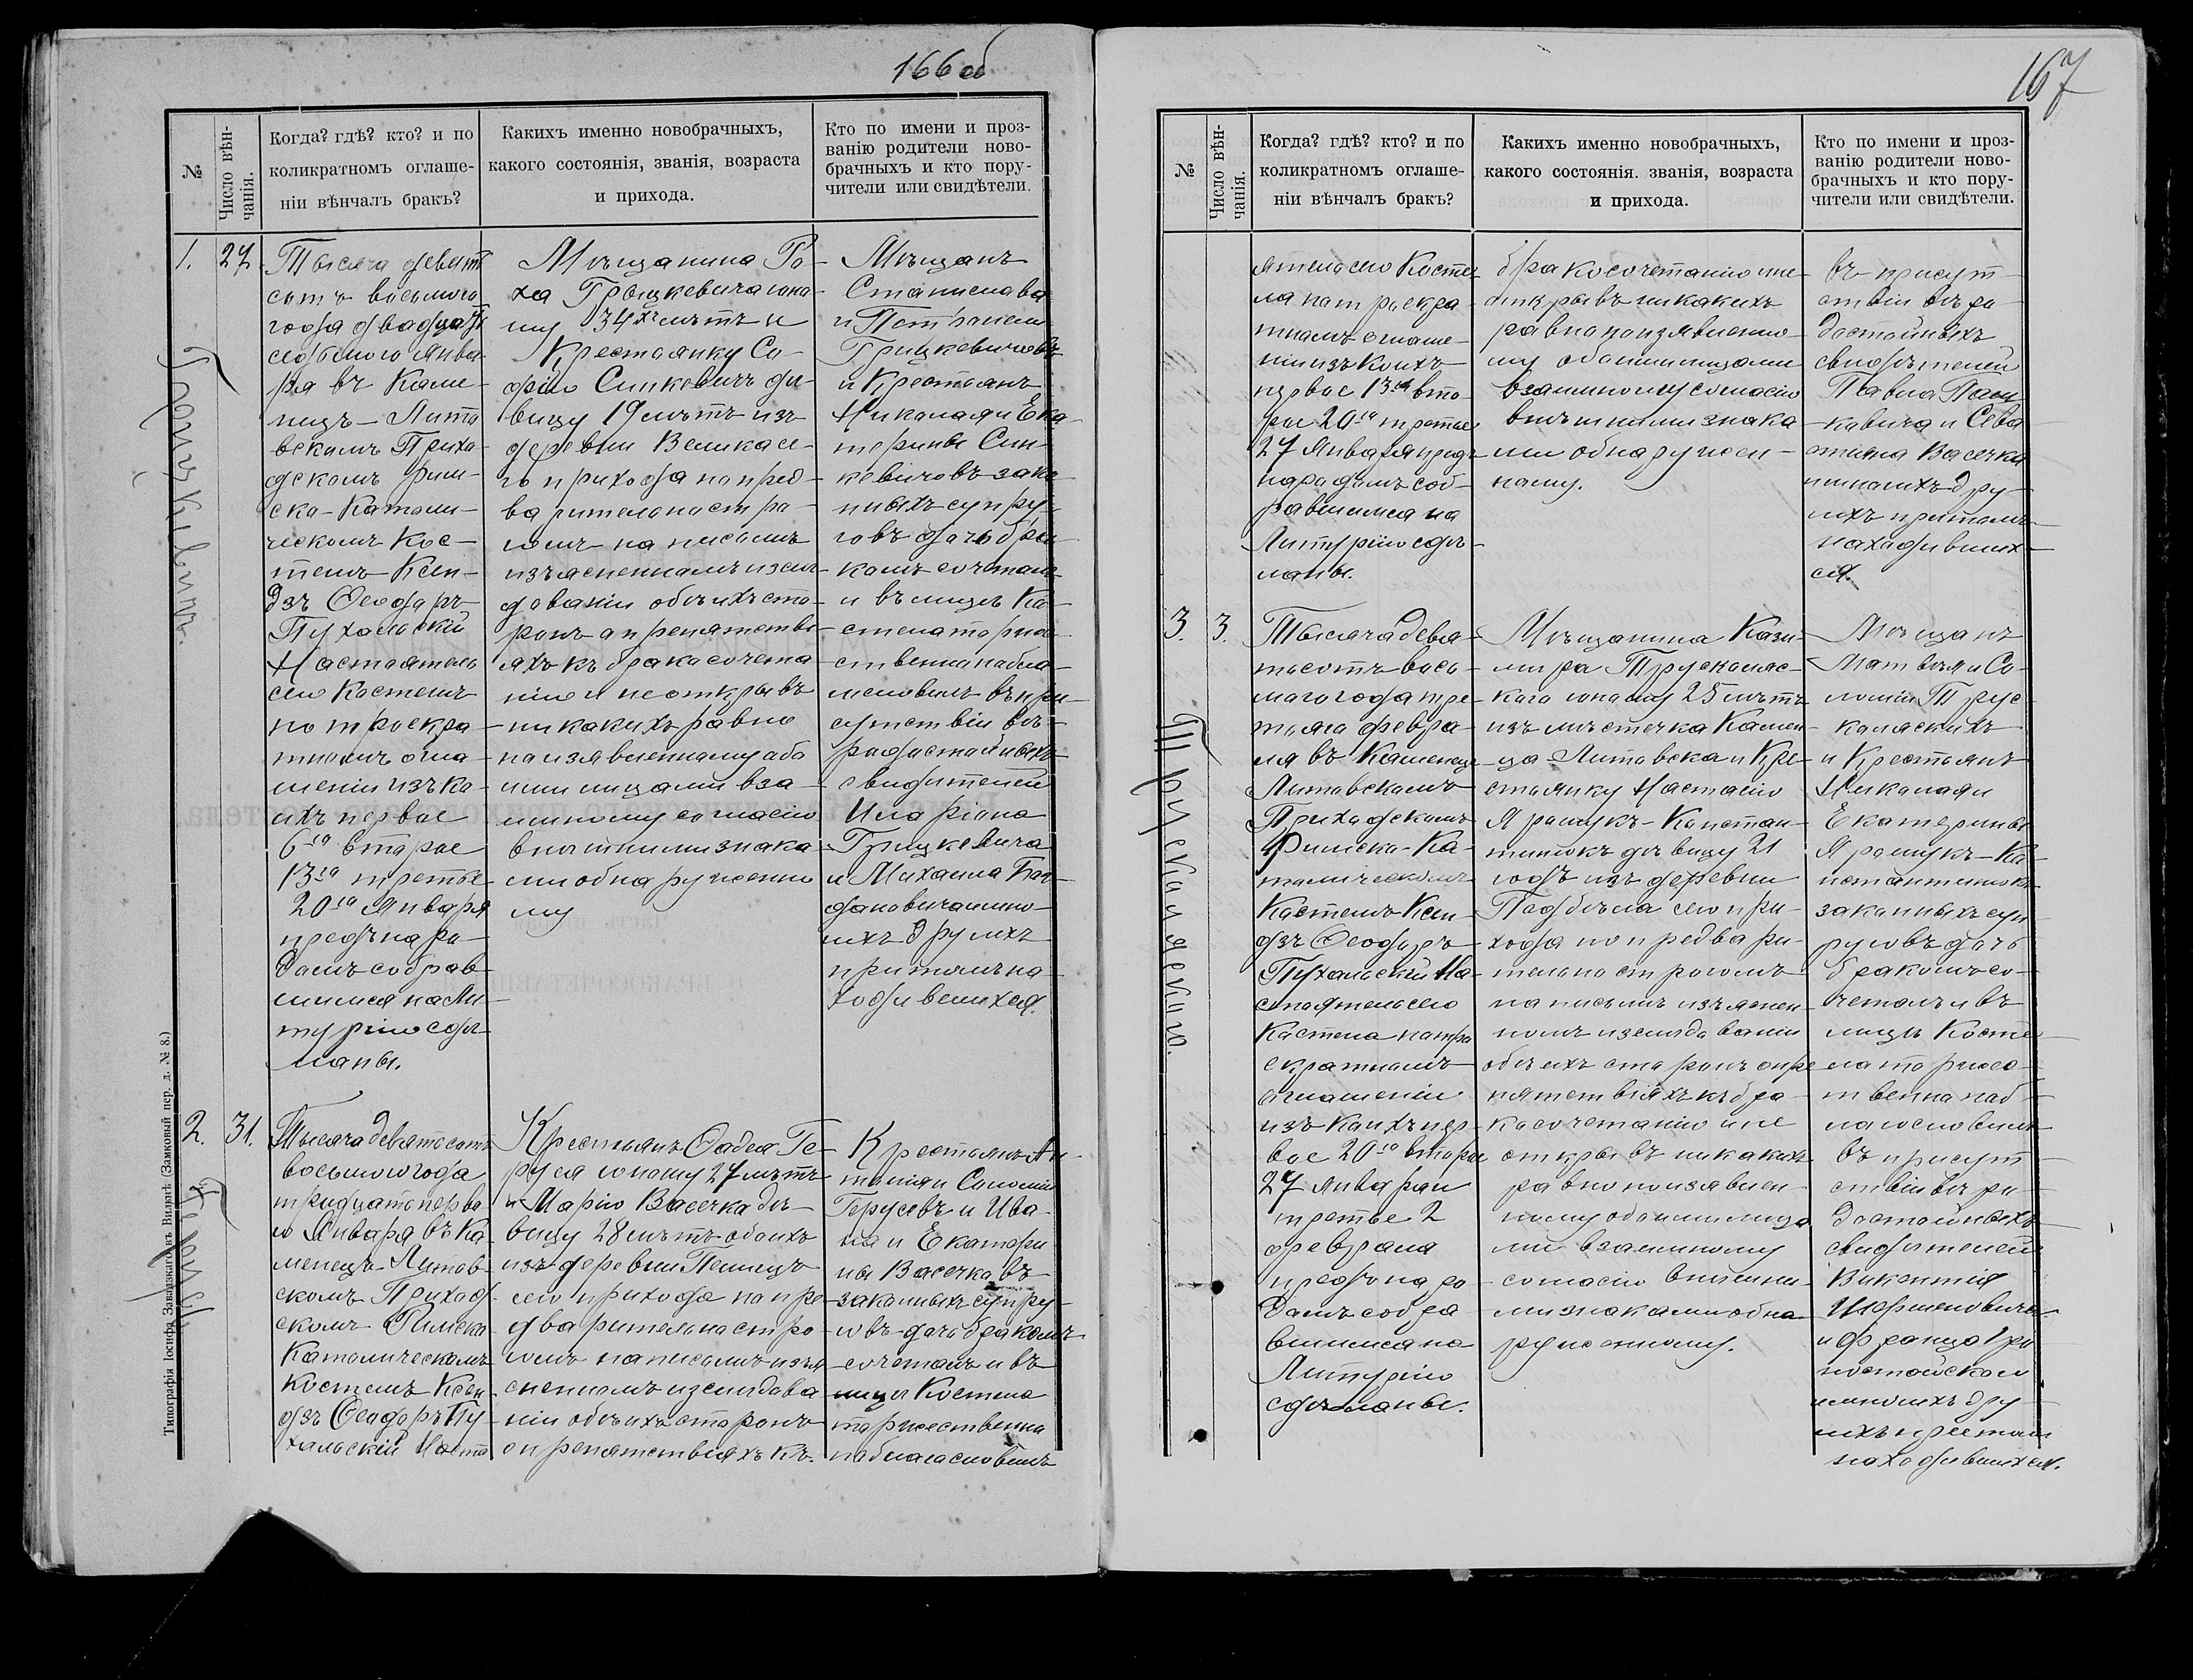 166 об
№
Число вѣн-
чанія.
Когда? гдѣ? кто? и по
коликратномъ оглаше-
ніи вѣнчалъ бракъ?
Какихъ именно новобрачныхъ,
какого состоянія, званія, возраста
и прихода.
Кто по имени и проз-
ванію родители ново-
брачныхъ и кто пору-
чители или свидѣтели.
1.
27.
Тысяча девять
сотъ восьмого
года двадцать
седьмого Янва-
ря въ Каме-
нецъ-Лито
вскомъ Прихо-
дскомъ Рим-
ско-Католи-
ческомъ Кос-
телѣ Ксен-
дзъ Ѳеодоръ
Пухальскій
Настоятель
сего Костела
по троекра-
тномъ огла-
шеніи изъ ко-
ихъ первое
6го второе
13го третье
20го Января
предъ наро-
домъ собрав-
шимся на Ли-
тургію сдѣ-
ланы.
Мѣщанина Ро-
ха Грицкевича юно-
шу 34хъ лѣтъ и
Крестьянку Со-
фію Синкевичъ дѣ-
вицу 19 лѣтъ изъ
деревни Велика се-
го прихода по пред-
варительно стро-
гомъ на письмѣ
изъясненномъ изслѣ-
дованіи обѣихъ сто-
ронъ о препятстві-
яхъ къ бракосочета-
нію и не открывъ
никакихъ равно
по изъявленному обо
ими лицами вза-
имному согласію
внѣшними знака
ми обнаруженно
му
Мѣщанъ
Станислава
и Петронели
Грицкевичовъ
и Крестьянъ
Николая и Ека-
терины Син-
кевичовъ зако-
нныхъ супру-
говъ дочь бра-
комъ сочеталъ
и въ лицѣ Ко-
стела торже-
ственно побла-
гословилъ въ при-
сутствіи вѣ-
родостойныхъ
свидѣтелей
Иларіона
Грицкевича
и Михаила Бог-
дановича и мно-
гихъ другихъ
при томъ на-
ходившихся.
Грицкевичъ.
2.
31.
Тысяча девятьсотъ
восьмого года
тридцать перва
го Января въ Ка
менецъ-Литов-
скомъ Приход
скомъ Римско
Католическомъ
Костелѣ Ксен
дзъ Ѳеодоръ Пу-
хальскій Насто
Крестьянъ Ѳадея Ге-
руся юношу 27 лѣтъ
и Марію Васечка дѣ-
вицу 28 лѣтъ обоихъ
изъ деревни Пелищъ
сего прихода по пре
дварительно стро
гомъ на письмѣ изъя
сненномъ изслѣдова
ніи обѣихъ сторонъ
о препятствіяхъ къ
Крестьянъ Ан
тонія и Соломіи
Герусевъ и Ива-
на и Екатери
ны Васечковъ
законныхъ супру-
говъ дочь бракомъ
сочеталъ и въ
лицѣ Костела
торжественно
поблагословилъ
Герусь
Типографія Іосифа Завадзкаго въ Вильнѣ (Замковый пер. д. № 8.)
167
№
Число вѣн-
чанія.
Когда? гдѣ? кто? и по
коликратномъ оглаше-
ніи вѣнчалъ бракъ?
Какихъ именно новобрачныхъ,
какого состоянія. званія, возраста
и прихода.
Кто по имени и проз-
ванію родители ново-
брачныхъ и кто пору-
чители или свидѣтели.
ятель сего Косте
ла по троекра-
тномъ оглаше-
ніи изъ коихъ
первое 13го вто-
рое 20го третье
27 Января предъ
народомъ соб-
равшимся на
Литургію сдѣ-
ланы.
бракосочетанію и не
открывъ никакихъ
равно по изъявленно
му обоими лицами
взаимному согласію
внѣшними знака
ми обнаружен-
ному.
въ присут-
ствіи вѣро-
достойныхъ
свидѣтелей
Павла
кевича и Сева
стіяна Васечки
и многихъ дру-
гихъ при томъ
находивших-
ся.
3.
3.
Тысяча девя-
тьсотъ вось-
мого года тре-
тьяго февра-
ля въ Каменецъ
Литовскомъ
Приходскомъ
Римско-Ка-
толическомъ
Костелѣ Ксен-
дзъ Ѳеодоръ
Пухальскій На-
стоятель сего
Костела по тро
екратномъ
оглашеніи
изъ коихъ пер-
вое 20го второе
27 Января и
третье 2
февраля
предъ наро-
домъ собра
вшимся на
Литургію
сдѣланы.
Мѣщанина Кази-
міра Трусколяс-
каго юношу 25 лѣтъ
изъ мѣстечка Камен
ца Литовска и Кре
стьянку Настасію
Ярошукъ-Констан
тинюкъ дѣвицу 21
годъ изъ деревни
Подбѣла сего при-
хода по предвари-
тельно строгомъ
на письмѣ изъяснен
номъ изслѣдованіи
обѣихъ сторонъ о пре
пятствіяхъ къ бра-
косочетанію и не
открывъ никакихъ
равно по изъявлен-
ному обоими лица
ми взаимному
согласію внѣшни-
ми знаками обна
руженному.
Мѣщанъ
Матвѣя и Со-
ломіи Трус-
коляскихъ
и Крестьянъ
Николая и
Екатерины
Ярошукъ-Ко-
нстантинюкъ
законныхъ суп-
руговъ дочь
бракомъ со-
четалъ и въ
лицѣ Косте
ла торжес-
твенно поб-
лагословилъ
въ присут-
ствіи вѣро-
достойныхъ
свидѣтелей
Викентія
и многихъ дру-
гихъ при томъ
находившихся.
Трусколяскаго.